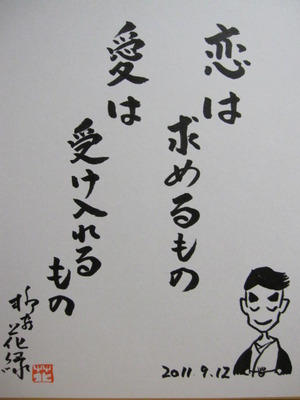 恋は
求めるもの
愛は
受け入れる
もの
柳家
花緑
2011 9.12